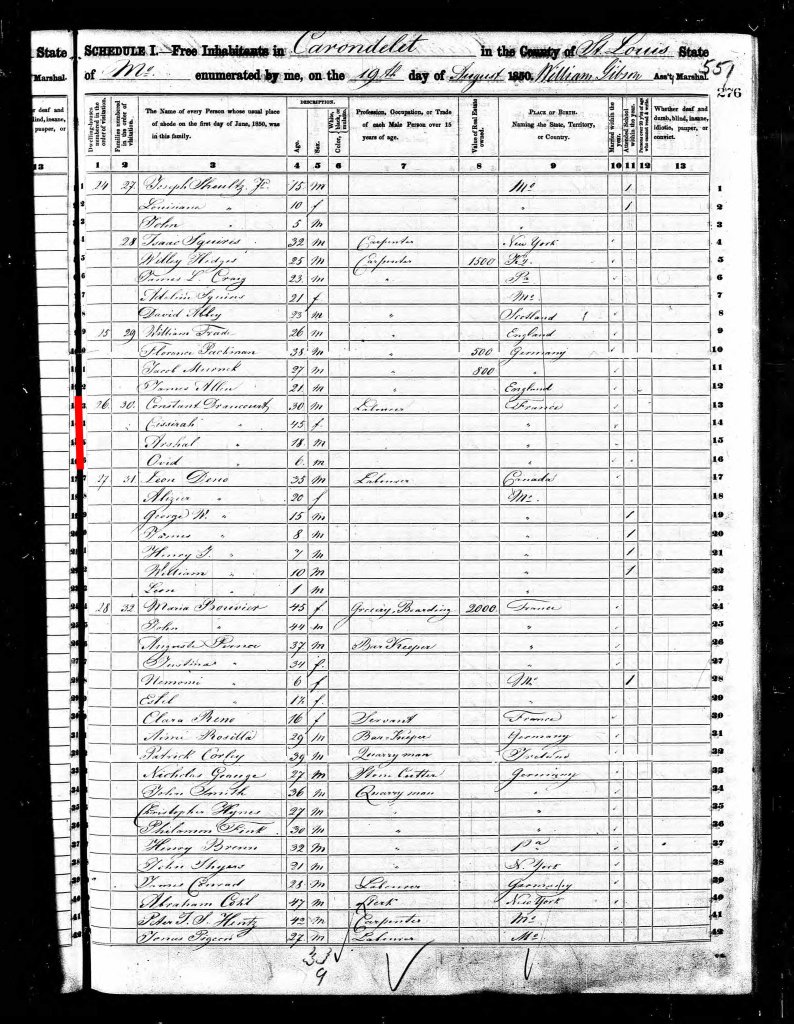 State
Marshal.
deaf and
insane,
pauper, or
13
SCHEDULE I.—Free Inhabitants in Carondelet in the County of St. Louis State
of Mo. enumerated by me, on the 19th day of August 1850. William Gibson Ass't Marshal.
551
276
Dwelling-houses numbered in the order of visitation.
Families numbered in the order of visitation.
The Name of every Person whose usual place of abode on the first day of June, 1850, was in this family.
DESCRIPTION.
Age.
Sex.
Color, White, black, or mulatto.
Profession, Occupation, or Trade of each Male Person over 15 years of age.
Value of Real Estate owned.
PLACE OF BIRTH. Naming the State, Territory, or Country.
Married within the year.
Attended School within the year.
Persons over 20 y'rs of age who cannot read & write.
Whether deaf and dumb, blind, insane, idiotic, pauper, or convict.
1 2 3 4 5 6 7 8 9 10 11 12 13
24 27 Joseph 15 m Mo 1 1
Louisiana " 10 f " 1 2
John " 5 m " 3
28 Isaac Squires 32 m Carpenter New York 4
Willey Hedges 25 m Carpenter 1500 Ky. 5
James L. Craig 23 m " Pa 6
Squires 21 f Mo 7
David Alley 23 m " Scotland 8
15 29 William 26 m " England 9
Florence Packman 38 m " 500 Germany 10
Jacob 27 m " 800 " 11
James Allen 21 m " England 12
26 30 Constant Drancourt 30 m Labourer France 13
" 45 f " 14
Arshal " 18 m " 15
Ovid " 6 m " 16
27 31 Leon Deno 35 m Labourer Canada 17
" 20 f Mo. 18
George W. " 15 m " 1 19
James " 8 m " 1 20
Henry " 7 m " 1 21
William " 10 m " 1 22
Leon " 1 m " 23
28 32 Maria Bouvier 45 f Grocery, Boarding 2000 France 24
John " 44 m " 25
Auguste 37 m Bar Keeper " 26
" 34 f " 27
" 6 f Mo 1 28
" f 29
Clara Reno 16 f Servant France 30
Rosilla 29 m Bar Keeper Germany 31
Patrick Corley 39 m Quarryman Ireland 32
Nicholas 27 m Stone Cutter Germany 33
John Smith 36 m Quarryman " 34
Christopher Hynes 27 m " " 35
30 m " " 36
Henry 32 m " Pa 37
John 21 m " N York 38
James Conrad 25 m Labourer Germany 39
Abraham 47 m Clerk New York 40
Peter 42 m Carpenter Mo 41
27 m Labourer Mo 42